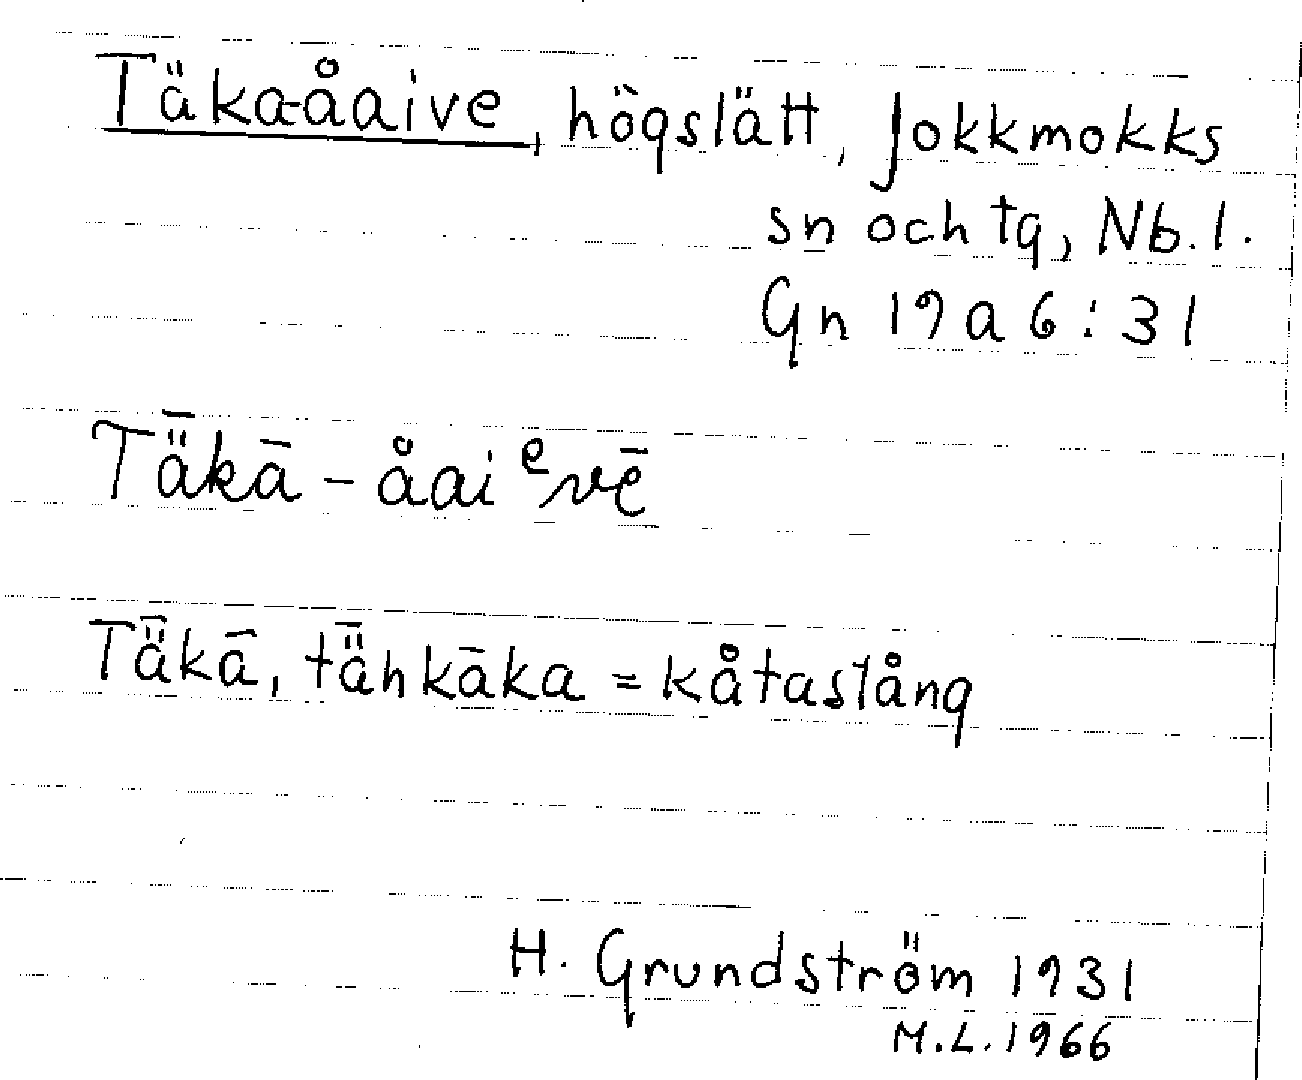 Täka-åaive, högslätt, Jokkmokks
sn och tg, Nb.l.
Gn 19 a 6:31
Tǟkā - åaiᵉvē
Tǟkā, tǟhkāka = kåtastång
H. Grundström 1931
M.L. 1966